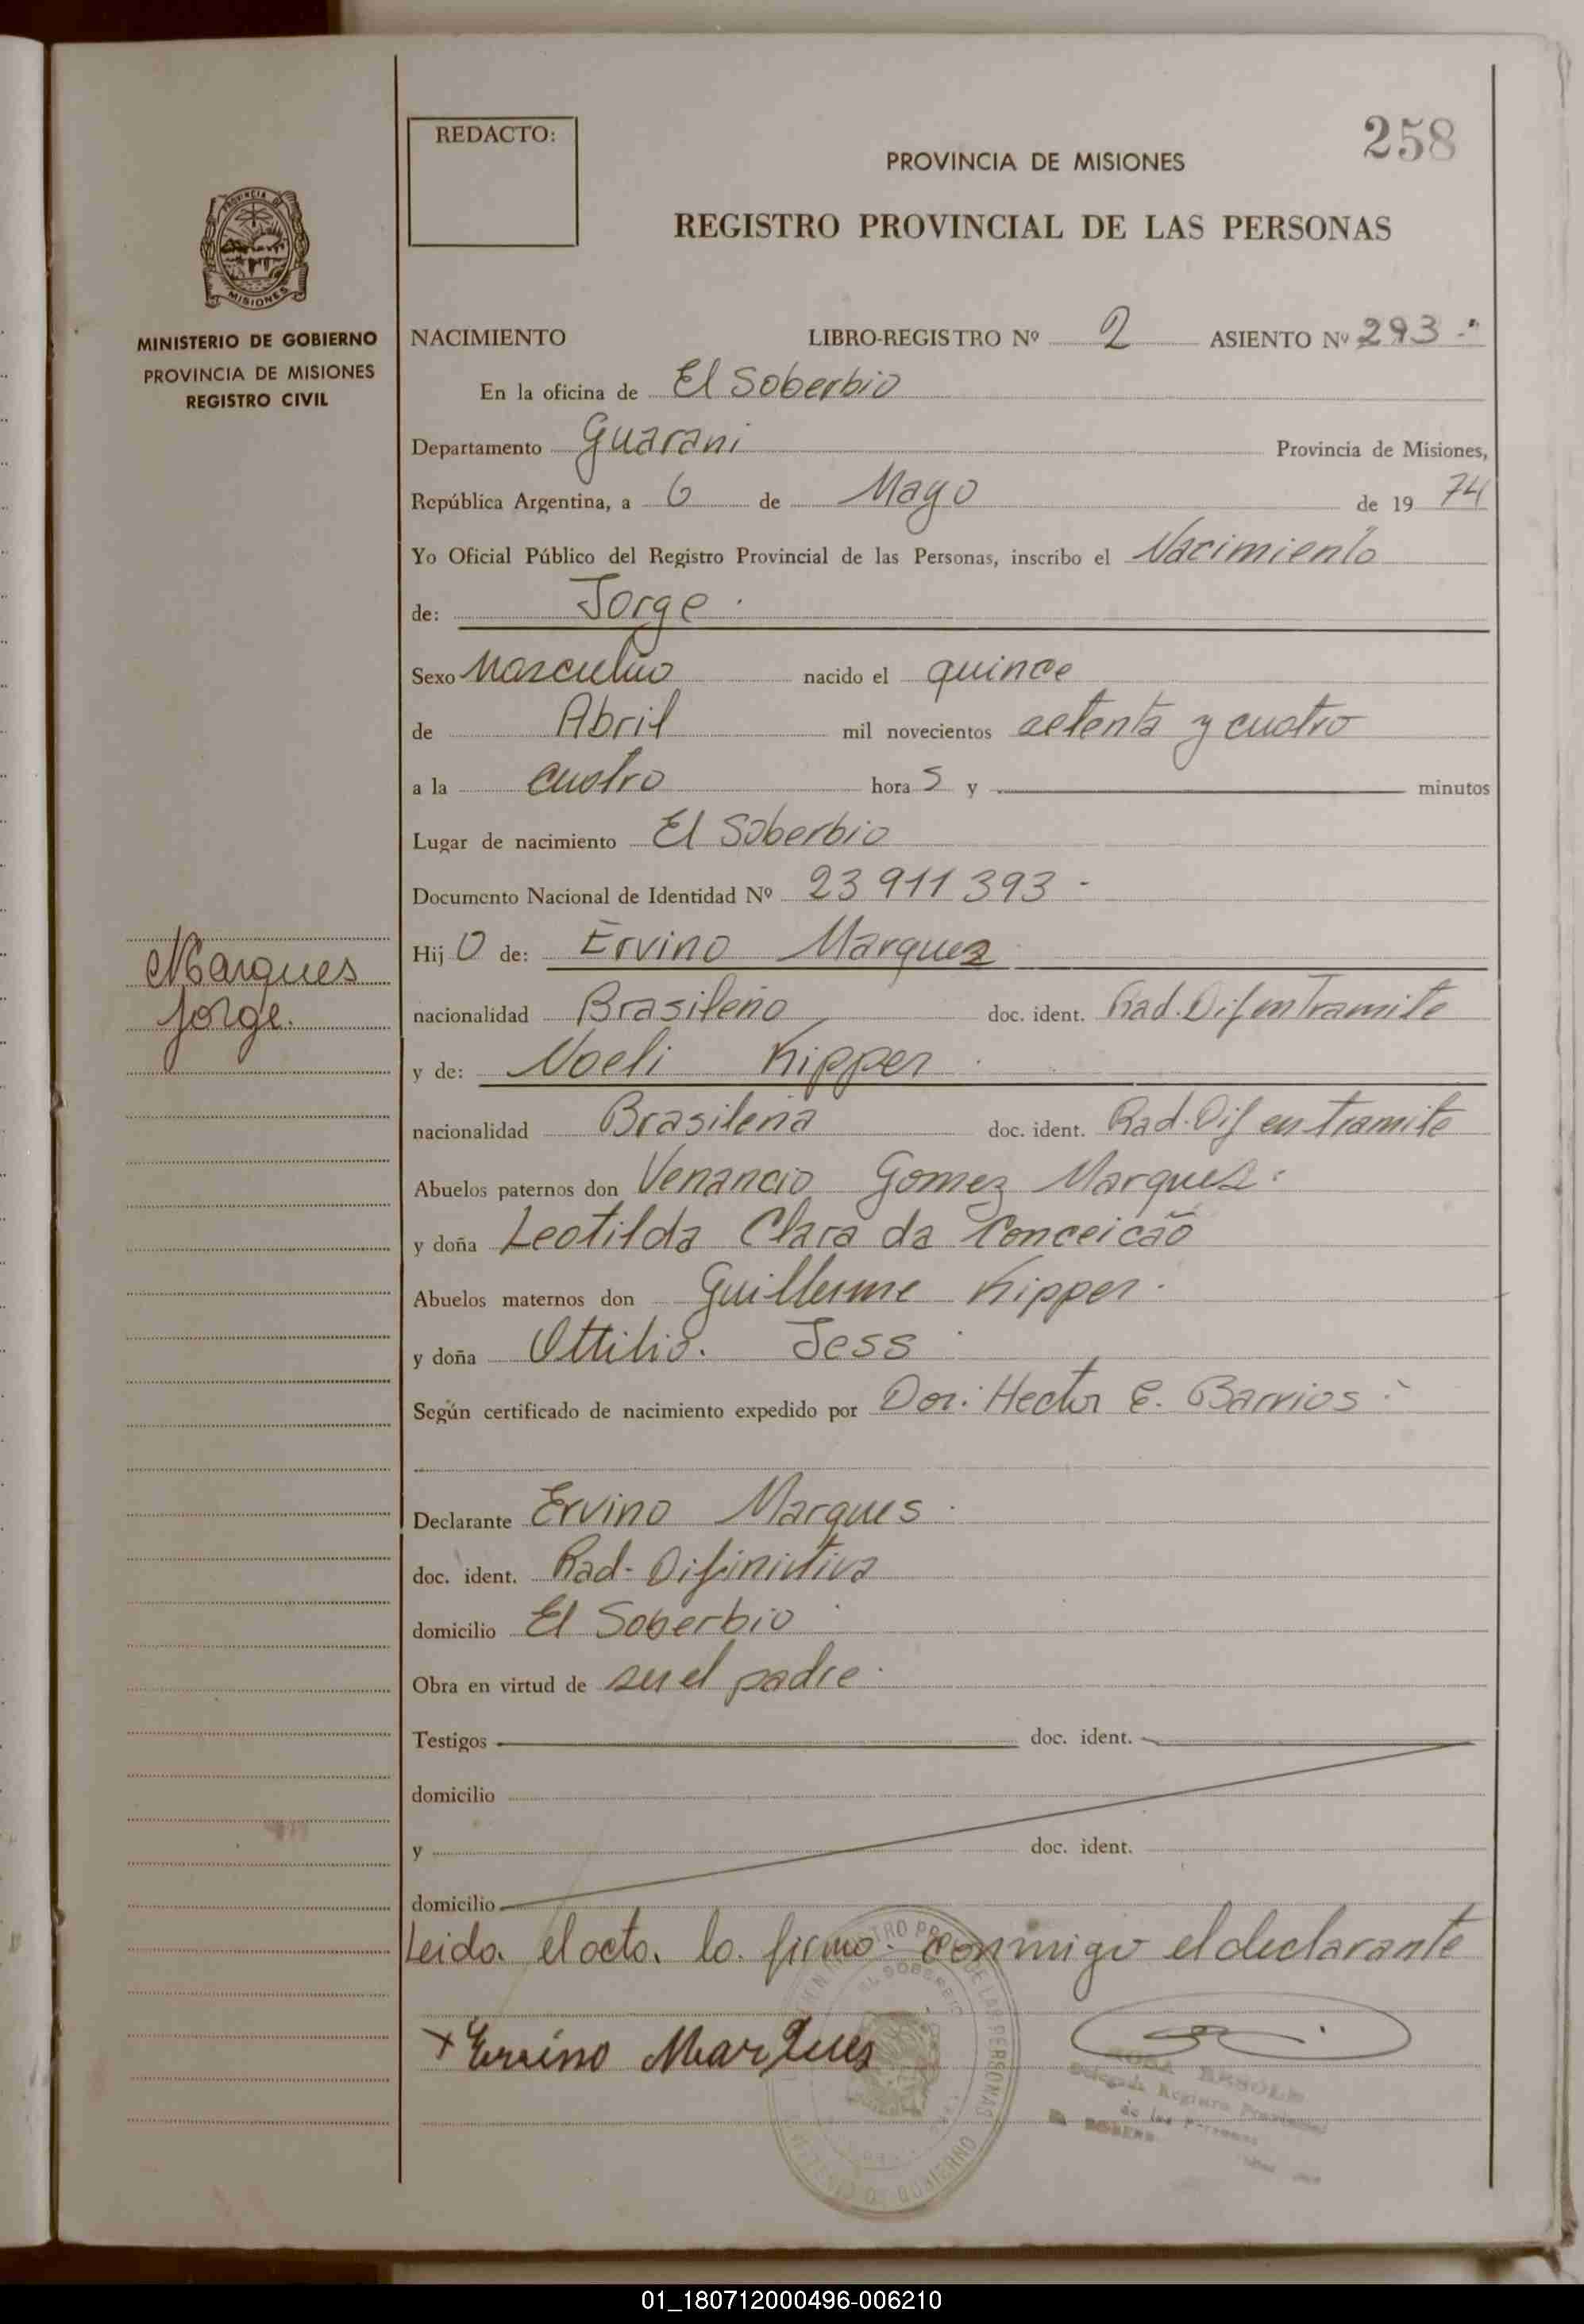 REDACTO:
258
PROVINCIA DE MISIONES
REGISTRO PROVINCIAL DE LAS PERSONAS
PROVINCIA DE
MISIONES
MINISTERIO DE GOBIERNO
PROVINCIA DE MISIONES
REGISTRO CIVIL
NACIMIENTO LIBRO-REGISTRO Nº 2 ASIENTO Nº 293
En la oficina de El Soberbio
Departamento Guarani Provincia de Misiones,
República Argentina, a 6 de Mayo de 19 74
Yo Oficial Público del Registro Provincial de las Personas, inscribo el Nacimiento
de: Jorge.
Sexo Masculino nacido el quince
de Abril mil novecientos setenta y cuatro
a la cuatro hora s y minutos
Lugar de nacimiento El Soberbio
Documento Nacional de Identidad Nº 23 911 393 -
Marques
Jorge.
Hij o de: Ervino Marquez
nacionalidad Brasileño doc. ident. Rad. Dif en Tramite
y de: Noeli Kipper
nacionalidad Brasileña doc. ident. Rad. Dif en tramite
Abuelos paternos don Venancio Gomez Marquez
y doña Leotilda Clara da Conceicão
Abuelos maternos don Guillerme Kipper.
y doña Ottilia. Jess
Según certificado de nacimiento expedido por Dor: Hector E. Barrios
Declarante Ervino Marques
doc. ident. Rad- Difinitiva
domicilio El Soberbio
Obra en virtud de ser el padre.
Testigos doc. ident.
domicilio
y doc. ident.
domicilio
Leida el acta. lo. firma. conmigo el declarante
x Ervino Marques
EL SOBERBIO
DE LAS PERSONAS
Delegada Registro Provincial
de las Personas
01_180712000496-006210